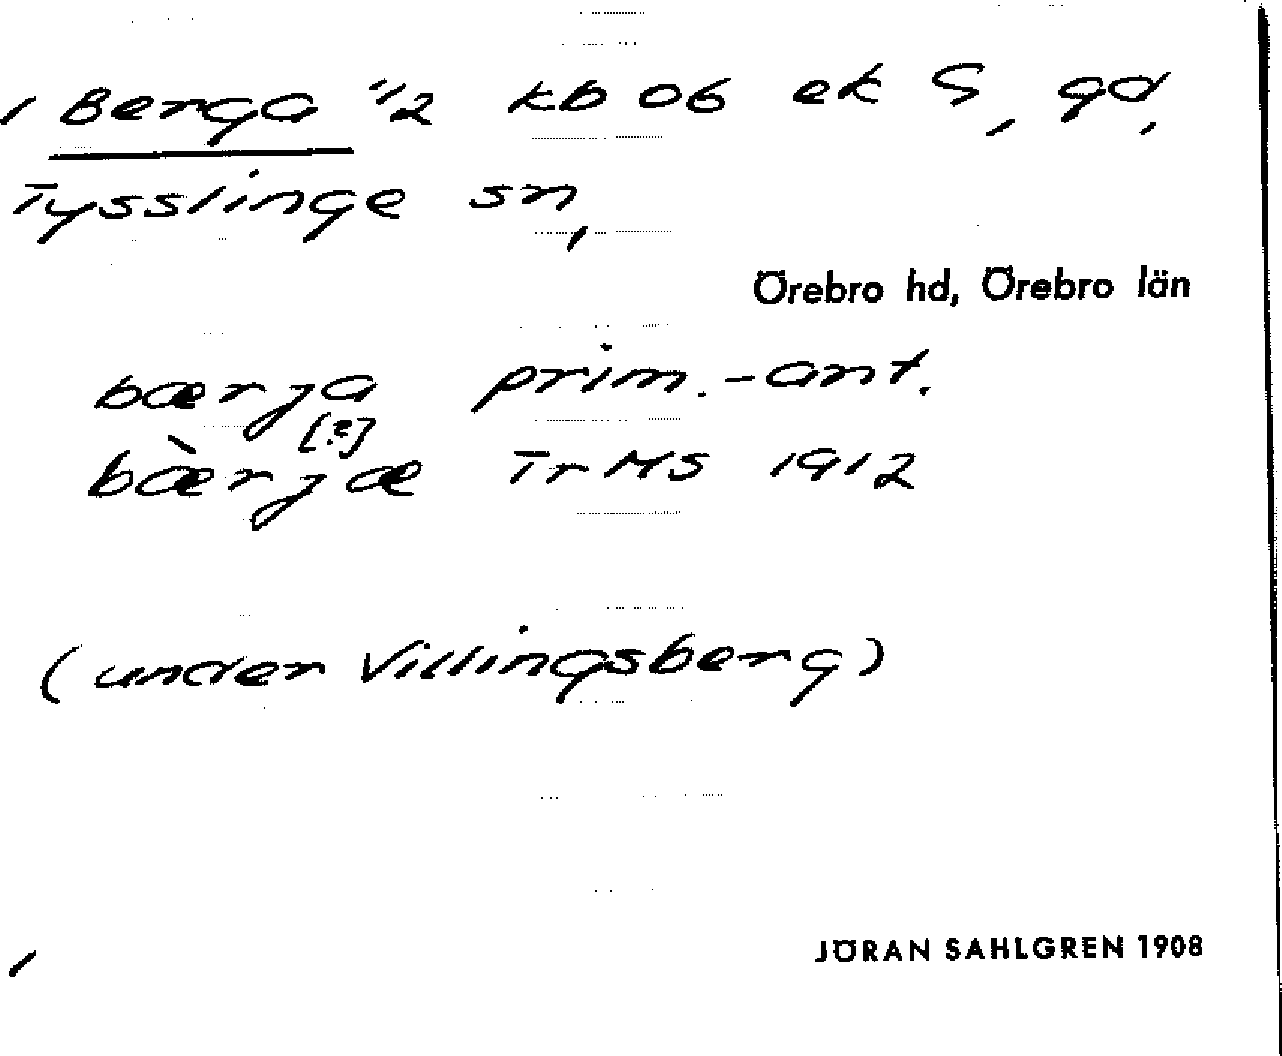 Berga 1/2 kb 06 ek G, gd,
Tysslinge sn,
Örebro hd, Örebro län
bærja prim.-ant.
[?]
bæ̀rjæ Tr MS 1912
(under Villingsberg)
JÖRAN SAHLGREN 1908